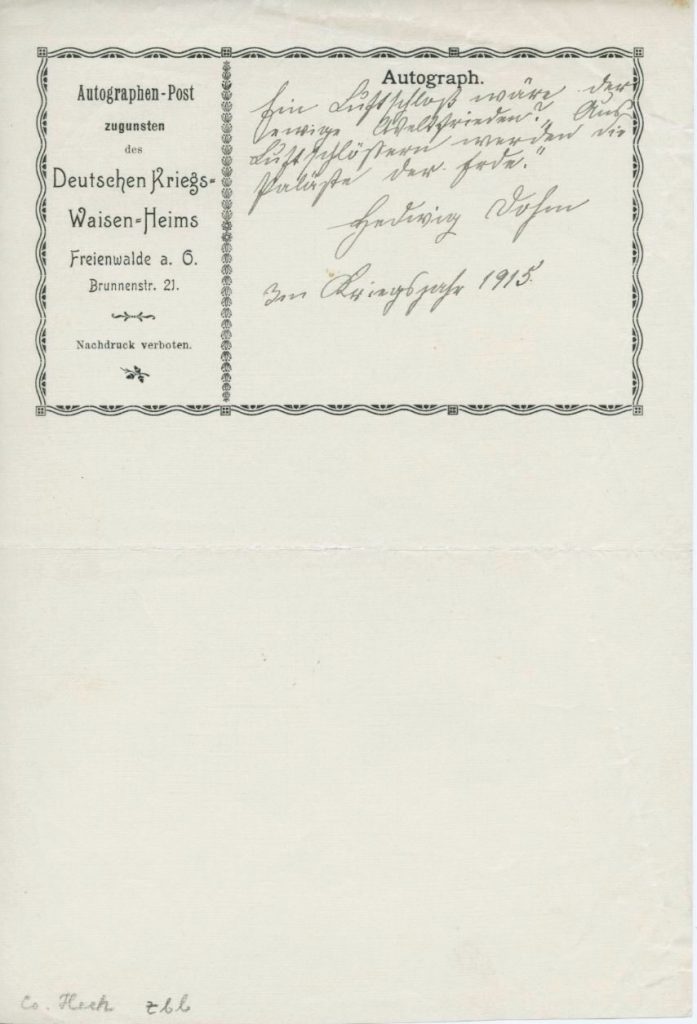 Autographen-Post
zugunsten
des
Deutschen Kriegs-
Waisen-Heims
Freienwalde a. O.
Brunnenstr. 21.
Nachdruck verboten.
Autograph.
Ein Luftschloß wäre der
ewige Weltfrieden? „Aus
Luftschlössern werden die
Paläste der Erde.“
Hedwig Dohm
Im Kriegsjahr 1915.
Co. Heck